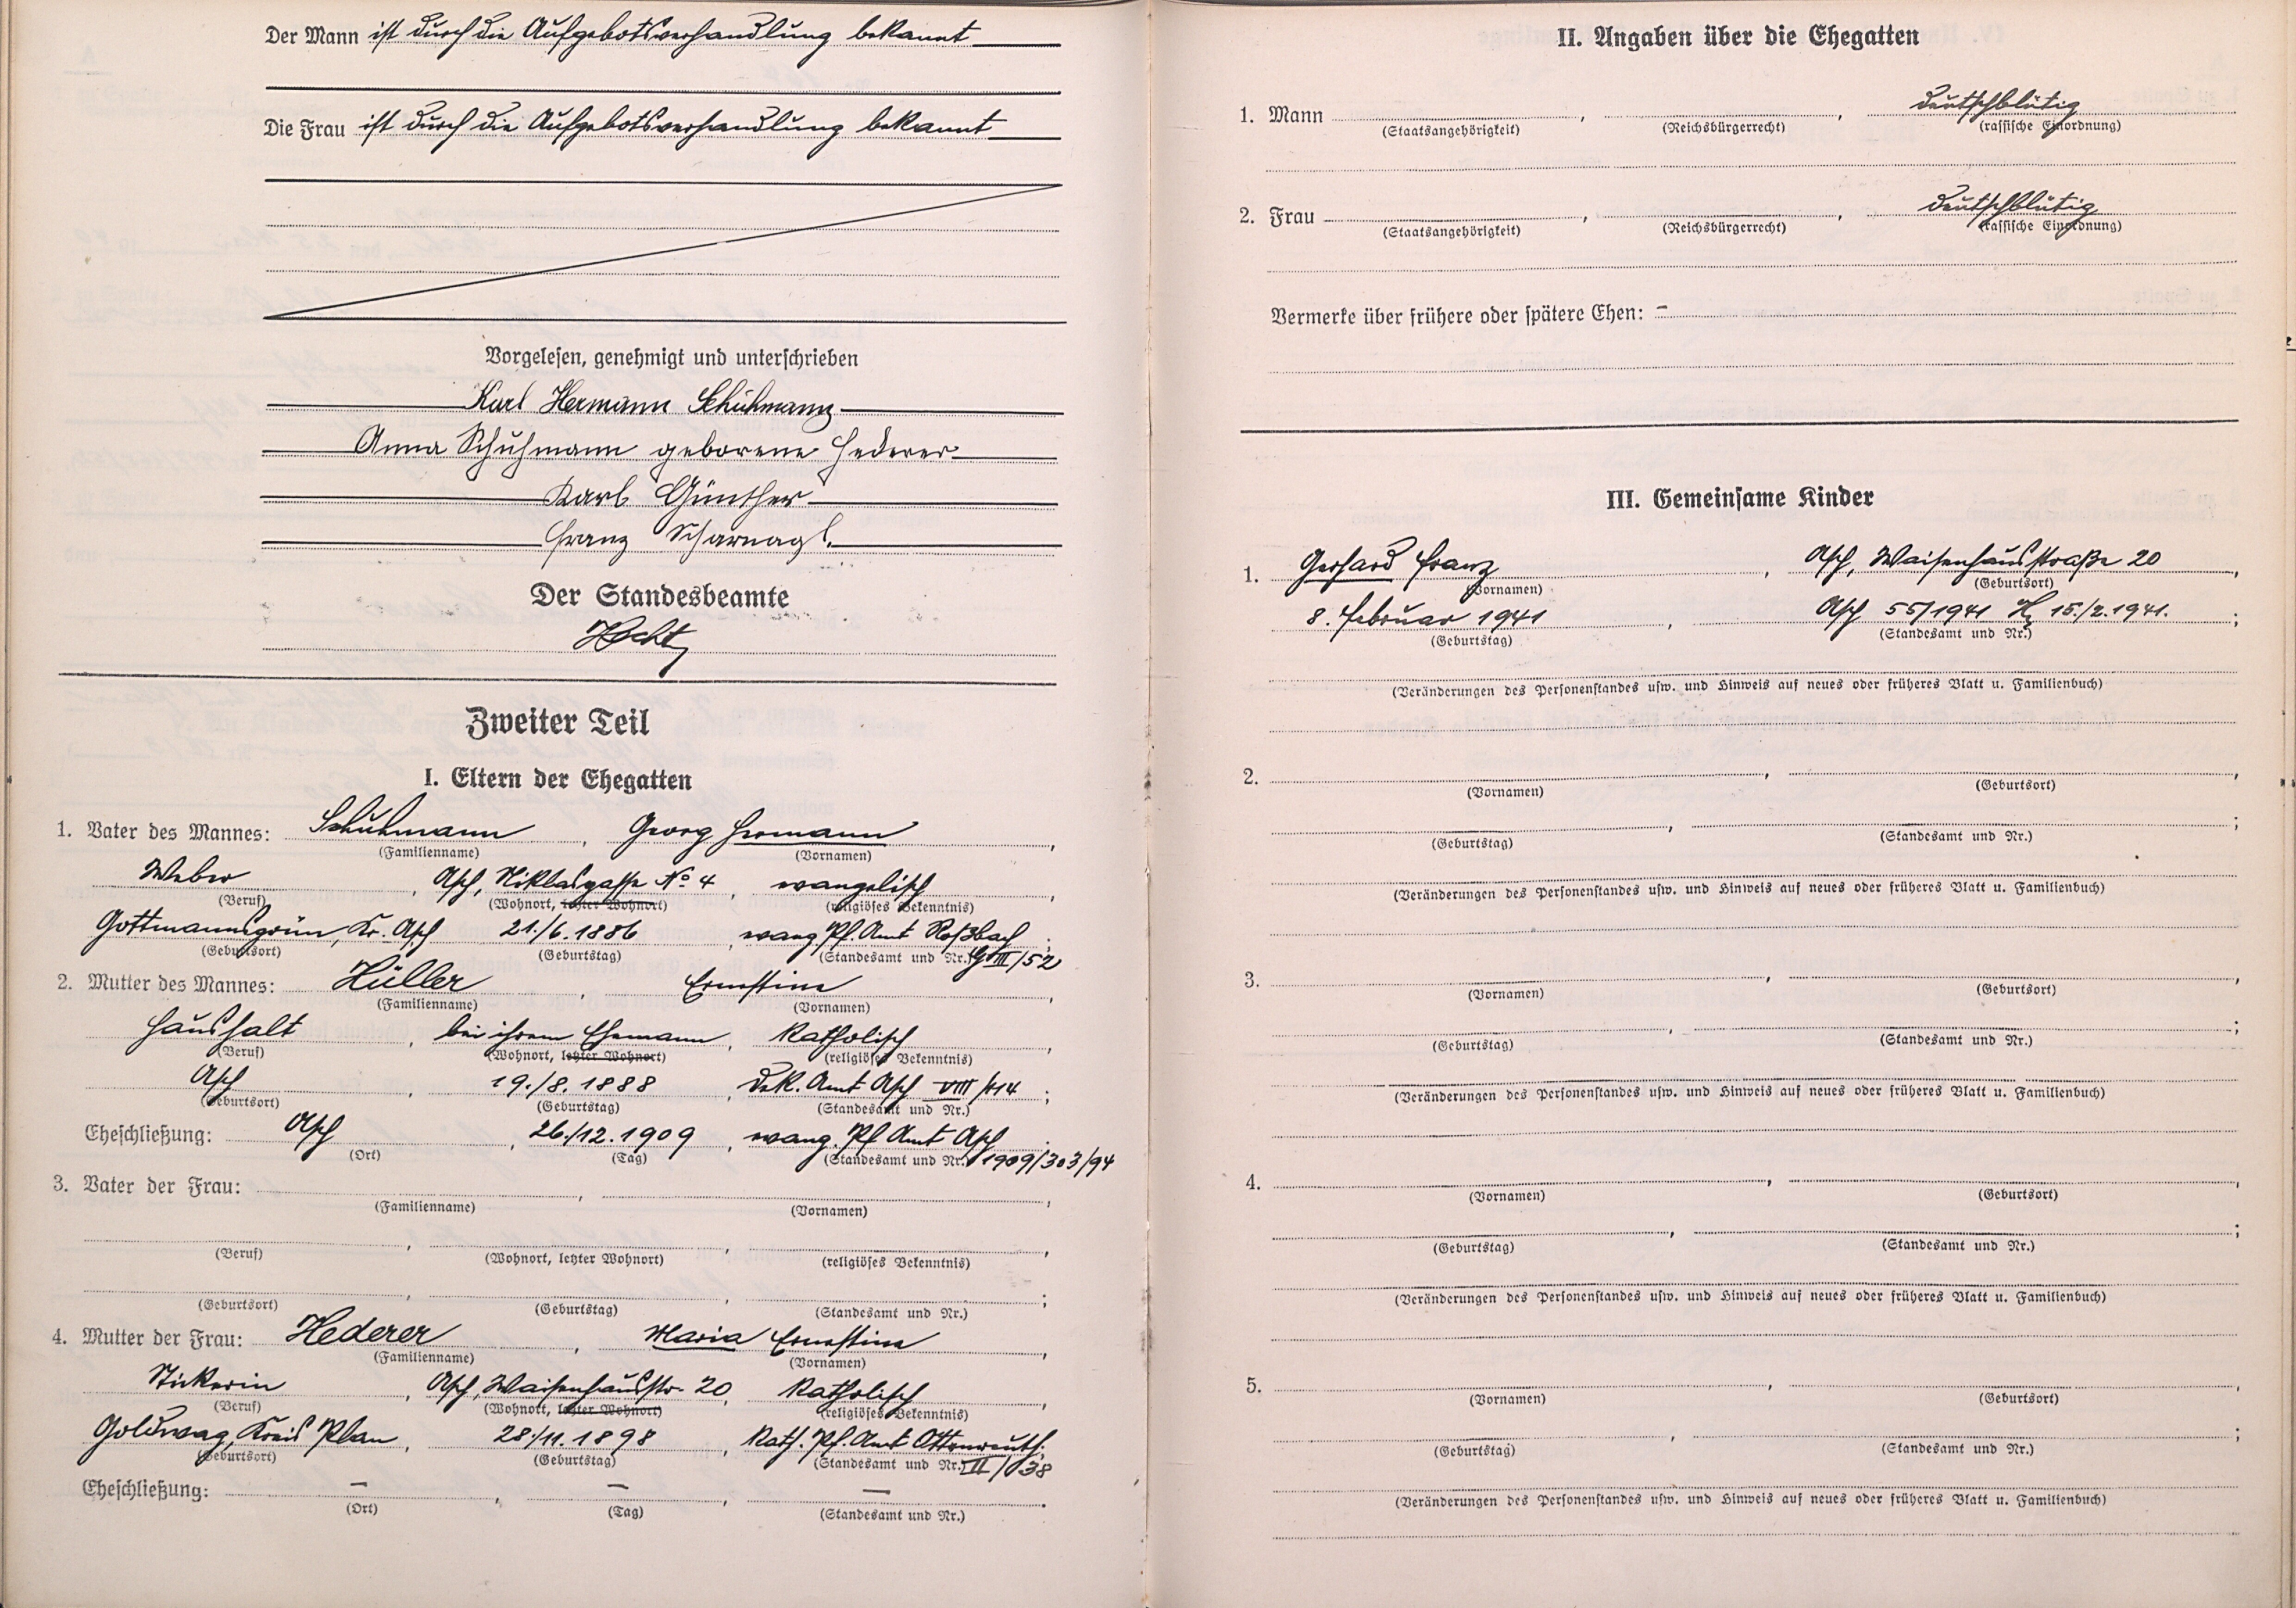 Der Mann ist durch die Aufgebotsverhandlung bekannt
Die Frau ist durch die Aufgebotsverhandlung bekannt
Vorgelesen, genehmigt und unterschrieben
Karl Hermann Schuhmann
Anna Schuhmann geborene Hederer
Karl Günther
Franz Scharnagl.
Der Standesbeamte
Zweiter Teil
I. Eltern der Ehegatten
1. Vater des Mannes: Schuhmann, Georg Hermann,
(Familienname) (Vornamen)
Weber, Asch, Niklasgasse No. 4, evangelisch,
(Beruf) (Wohnort, letzter Wohnort) (religiöses Bekenntnis)
Gottmannsgrün, Kr. Asch 21./6.1886, evang. Pf. Amt Roßbach;
(Geburtsort) (Geburtstag) (Standesamt und Nr.) G III/52
2. Mutter des Mannes: Hüller, Ernestine,
(Familienname) (Vornamen)
Haushalt, bei ihrem Ehemann, katholisch,
(Beruf) (Wohnort, letzter Wohnort) (religiöses Bekenntnis)
Asch, 19./8.1888, Dek. Amt Asch VIII/114;
(Geburtsort) (Geburtstag) (Standesamt und Nr.)
Eheschließung: Asch, 26./12.1909, evang. Pf Amt Asch.
(Ort) (Tag) (Standesamt und Nr.) 1909/303/94
3. Vater der Frau: , ,
(Familienname) (Vornamen)
(Beruf) (Wohnort, letzter Wohnort) (religiöses Bekenntnis)
(Geburtsort) (Geburtstag) (Standesamt und Nr.)
4. Mutter der Frau: Hederer, Maria Ernestine,
(Familienname) (Vornamen)
Stickerin, Asch, Waisenhausstr. 20, katholisch,
(Beruf) (Wohnort, letzter Wohnort) (religiöses Bekenntnis)
Goldwag, Kreis Plan, 28./11.1898, Kath. Pf. Amt Ottenreuth;
(Geburtsort) (Geburtstag) (Standesamt und Nr.) II/38
Eheschließung: –, –, –.
(Ort) (Tag) (Standesamt und Nr.)
II. Angaben über die Ehegatten
1. Mann , , deutschblütig
(Staatsangehörigkeit) (Reichsbürgerrecht) (rassische Einordnung)
2. Frau , , deutschblütig
(Staatsangehörigkeit) (Reichsbürgerrecht) (rassische Einordnung)
Vermerke über frühere oder spätere Ehen: –
III. Gemeinsame Kinder
1. Gerhard Franz, Asch, Waisenhausstraße 20,
(Vornamen) (Geburtsort)
8. Februar 1941, Asch 55/1941 15./2.1941.;
(Geburtstag) (Standesamt und Nr.)
(Veränderungen des Personenstandes usw. und Hinweis auf neues oder früheres Blatt u. Familienbuch)
2. , ,
(Vornamen) (Geburtsort)
(Geburtstag) (Standesamt und Nr.)
(Veränderungen des Personenstandes usw. und Hinweis auf neues oder früheres Blatt u. Familienbuch)
3. , ,
(Vornamen) (Geburtsort)
(Geburtstag) (Standesamt und Nr.)
(Veränderungen des Personenstandes usw. und Hinweis auf neues oder früheres Blatt u. Familienbuch)
4. , ,
(Vornamen) (Geburtsort)
(Geburtstag) (Standesamt und Nr.)
(Veränderungen des Personenstandes usw. und Hinweis auf neues oder früheres Blatt u. Familienbuch)
5. , ,
(Vornamen) (Geburtsort)
(Geburtstag) (Standesamt und Nr.)
(Veränderungen des Personenstandes usw. und Hinweis auf neues oder früheres Blatt u. Familienbuch)